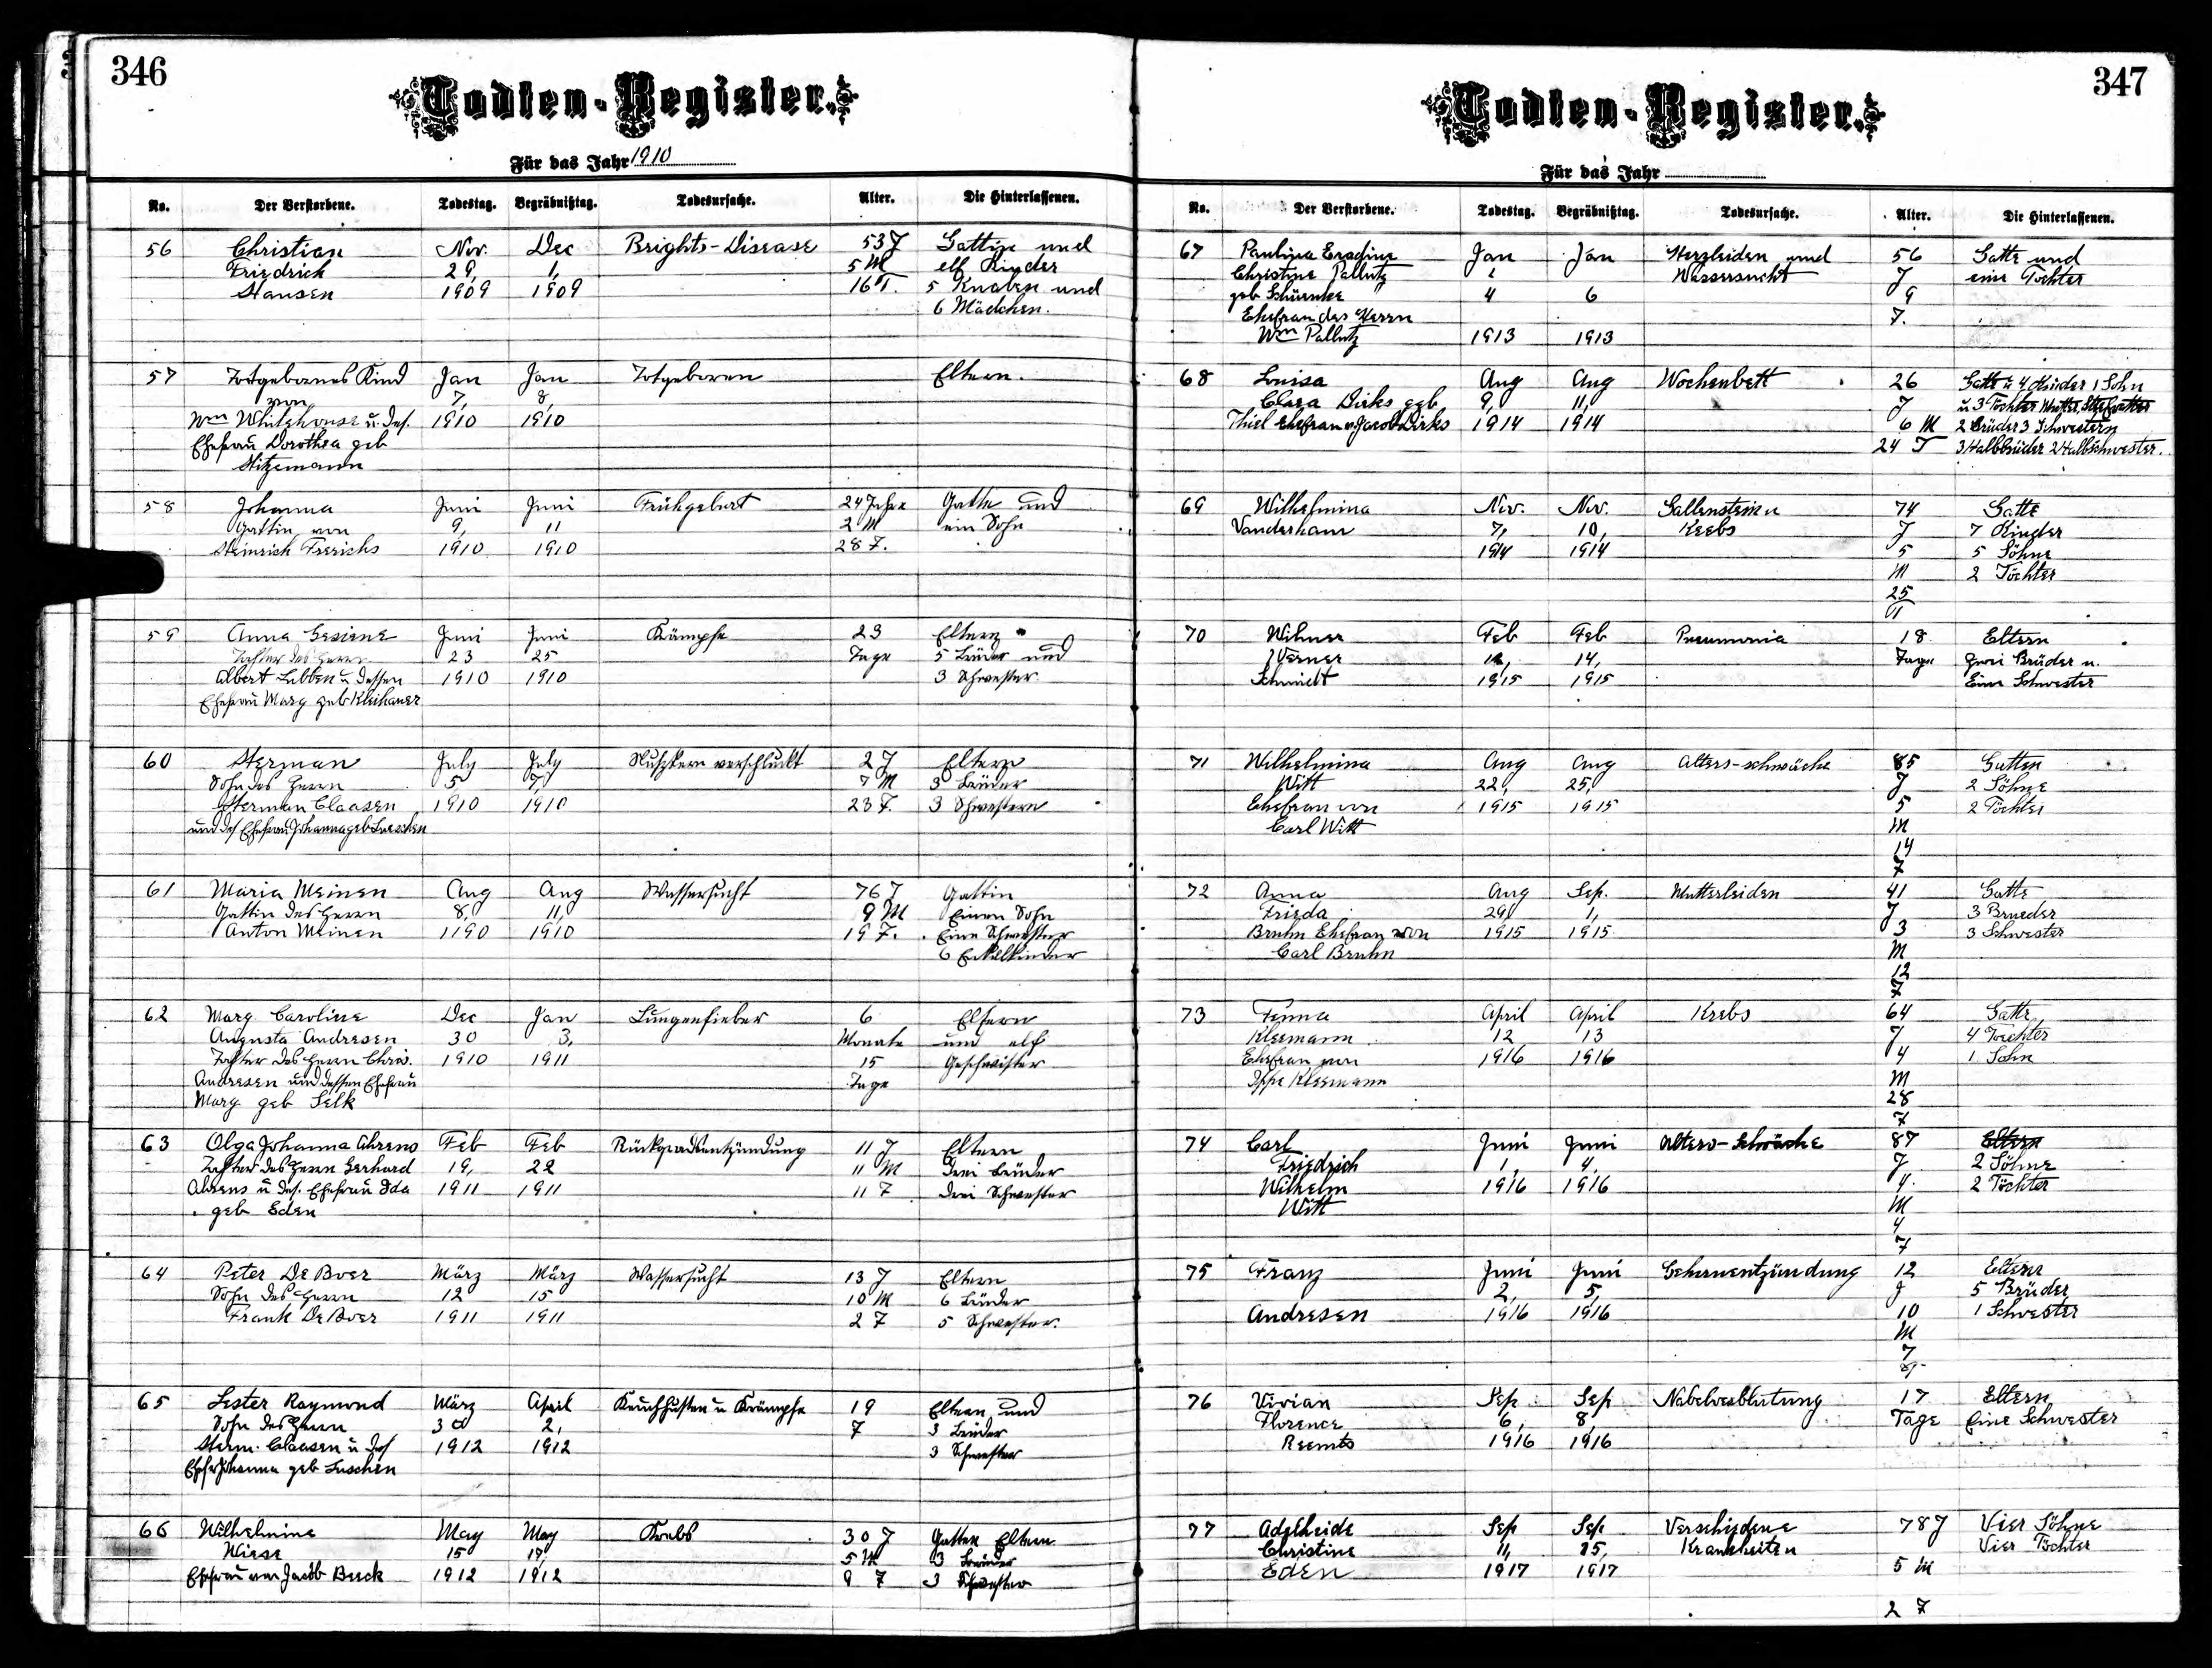 346
Todten-Register.
Für das Jahr 1910
No. Der Verstorbene. Todestag. Begräbnißtag. Todesursache. Alter. Die Hinterlassenen.
56 Christian Nov. Dec Brights-Disease 53 J Gattin und
Friedrich 29, 1, 5 M elf Kinder
Hansen 1909 1909 16 T. 5 Knaben und
6 Mädchen.
57 Totgebornes Kind Jan Jan Totgeboren Eltern.
von 7, 8,
Wm Whitehouse u. des. 1910 1910
Ehefrau Dorothea geb
Hitzemann
58 Johanna Juni Juni Frühgeburt 24 Jahre Gatte und
Gattin von 9, 11 2 M ein Sohn
Heinrich Frerichs 1910 1910 28 T.
59 Anna Gesiene Juni Juni Krämpfe 23 Eltern
Tochter des Herrn 23 25 Tage 5 Brüder und
Albert Lubben u. dessen 1910 1910 3 Schwester
Ehefrau Marg geb
60 Herman July July Nußkern verschluckt 2 J Eltern
Sohn des Herrn 5 7, 7 M 3 Brüder
Herman Claasen 1910 1910 23 T. 3 Schwestern
und des Ehefrau Johanna geb Lueschen
61 Maria Meinen Aug Aug Wassersucht 76 J Gattin
Gattin des Herrn 8, 11, 9 M Einen Sohn
Anton Meinen 1190 1910 19 T. Eine Schwester
6 Enkelkinder
62 Marg Caroline Dec Jan Lungenfieber 6 Eltern
Augusta Andresen 30 3, Monate und elf
Tochter des Herrn Chris. 1910 1911 15 Geschwister
Andresen und dessen Ehefrau Tage
Marg geb Selk
63 Olga Johanna Ahrens Feb Feb Rückgradsentzündung 11 J Eltern
Tochter des Herrn Gerhard 19, 22 11 M drei Brüder
Ahrens u des. Ehefrau Ida 1911 1911 11 T drei Schwester
geb Eden
64 Peter De Boer März März Wassersucht 13 J Eltern
Sohn des Herrn 12 15 10 M 6 Brüder
Frank De Boer 1911 1911 2 T 5 Schwester.
65 Lester Raymond März April Keuchhusten u Krämpfe 19 Eltern und
Sohn des Herrn 30 2, T 3 Brüder
Herm. Claasen u des 1912 1912 3 Schwester
Johanna geb Luschen
66 Wilhelmine May May Krebs 30 J Gatten Eltern
Wiese 15 17, 5 M 3 Brüder
Ehefrau von Jacob Buck 1912 1912 9 T 3 Schwester
347
Todten-Register.
Für das Jahr
No. Der Verstorbene. Todestag. Begräbnißtag. Todesursache. Alter. Die Hinterlassenen.
67 Paulina Jan Jan Herzleiden und 56 Gatte und
Christine Pallutz Wassersucht J eine Tochter
geb 4 6 9
Ehefrau des Herrn T.
Wm Pallutz 1913 1913
68 Louisa Aug Aug Wochenbett 26 Gatte u 4 Kinder 1 Sohn
Clara Dirks geb 9, 11, J u 3 Töchter Mutter, Stiefvatter
Thiel Ehefrau v. Jacob Dirks 1914 1914 6 M 2 Brüder 3 Schwestern
24 T 3 Halbbrüder 2 Halbschwester.
69 Wilhelmina Nov. Nov. Gallensteine 74 Gatte
Vanderham 7, 10, Krebs J 7 Kinder
1914 1914 5 5 Söhne
M 2 Töchter
25
T
70 Wilmer Feb Feb Pneumonia 18 Eltern
Werner 12, 14, Tage zwei Brüder u.
Schmidt 1915 1915 Eine Schwester
71 Wilhelmina Aug Aug Alters-schwäche 85 Gatten
Witt 22, 25, J 2 Söhne
Ehefrau von 1915 1915 5 2 Töchter
Carl Witt M
14
T
72 Anna Aug Sep. Mutterleiden 41 Gatte
Frieda 29, 1, J 3 Brueder
Bruhn Ehefrau von 1915 1915 3 3 Schwester
Carl Bruhn M
12
T
73 Fenna April April Krebs 64 Gatte
Kleemann 12 13 J 4 Toechter
Ehefrau von 1916 1916 4 1 Sohn
Kleemann M
28
T
74 Carl Juni Juni Alters-Schwäche 87 Eltern
Friedrich 1, 4, J 2 Söhne
Wilhelm 1916 1916 4. 2 Töchter
Witt M
4
T
75 Franz Juni Juni Gehirnentzündung 12 Eltern
2, 5, J 5 Brüder
Andresen 1916 1916 10 1 Schwester
M
7
T
76 Vivian Sep Sep Nabelverblutung 17 Eltern
Florence 6, 8, Tage Eine Schwester
Reemts 1916 1916
77 Adelheide Sep Sep. Verschiedene 78 J Vier Söhne
Christine 11, 15, Krankheiten Vier Töchter
Eden 1917 1917 5 M
2 T